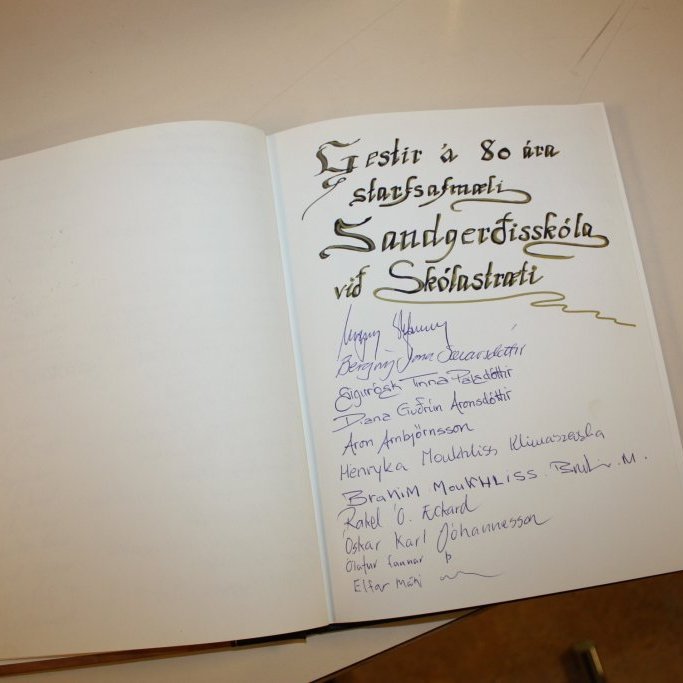 Gestir á 80 ára
starfsafmæli
Sandgerðisskóla
við Skólastræti
Bergný Jóna Sævarsdóttir
Tinna Pálsdóttir
Díana Guðrún Aronsdóttir
Aron Arnbjörnsson
Henryka Moukhliss Klimaszewska
BRAHIM MOUKHLISS M.
Rakel Ó. Eckard
Óskar Karl Jóhannesson
Ólafur Fannar Þ
Elfar Máni